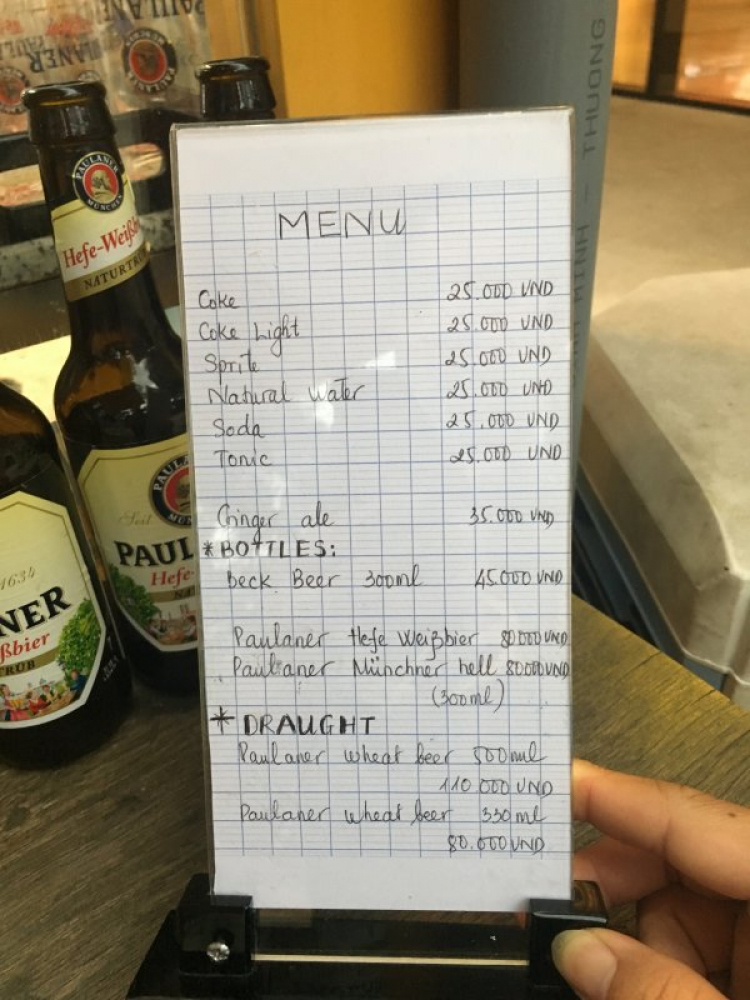 MENU
Coke 25.000 VND
Coke Light 25.000 VND
Sprite 25.000 VND
Natural Water 25.000 VND
Soda 25.000 VND
Tonic 25.000 VND
Ginger ale 35.000 VND
* BOTTLES:
Beck Beer 300ml 45.000 VND
Paulaner Hefe Weißbier 80.000 VND
Paulaner Münchner hell 80.000 VND
(300ml)
* DRAUGHT
Paulaner wheat beer 500ml
110.000 VND
Paulaner wheat beer 330 ml
80.000 VND
PAULANER
MÜNCHEN
Hefe-Weißb
NATURTR
Seit
PAUL
Hefe-
1634
NER
ßbier
TRUB
PAULANER
MINH - THUONG